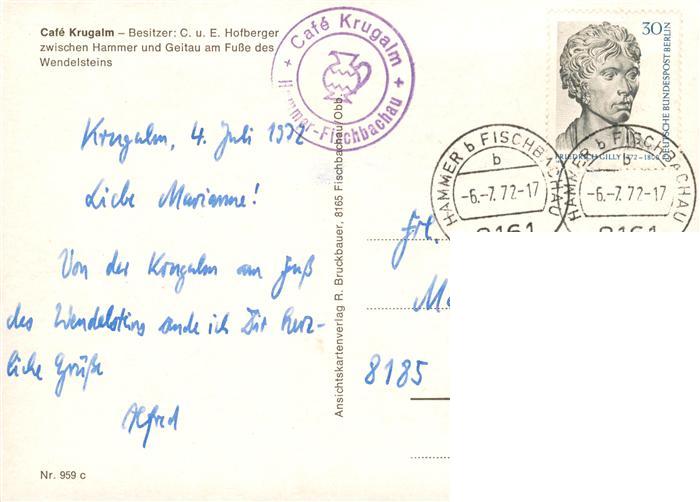 Café Krugalm – Besitzer: C. u. E. Hofberger
zwischen Hammer und Geitau am Fuße des
Wendelsteins
+ Café Krugalm +
Hammer-Fischbachau
30
DEUTSCHE BUNDESPOST BERLIN
FRIEDRICH GILLY 1772-1800
HAMMER b FISCHBACHAU
b
-6.-7.72-17
8161
HAMMER b FISCHBACHAU
b
-6.-7.72-17
8161
Krugalm, 4. Juli 1972
Liebe Marianne!
Von der Krugalm am Fuß
des Wendelsteins sende ich Dir herz-
liche Grüße
Alfred
Ansichtskartenverlag R. Bruckbauer, 8165 Fischbachau/Obb.
Frl.
Ma
8185
Nr. 959 c